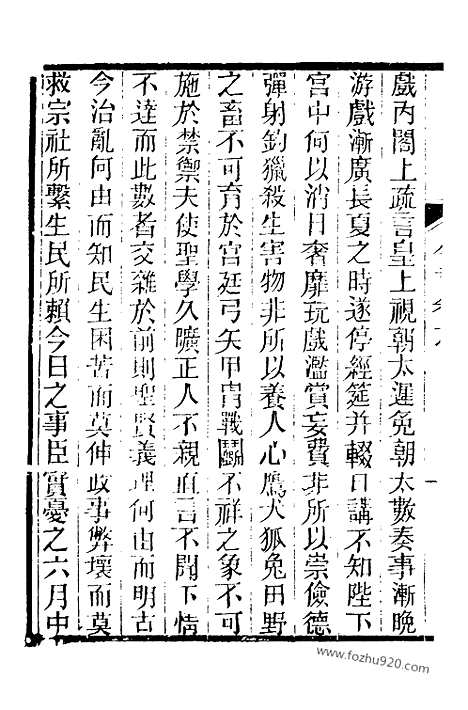 戲內閣上疏言皇上視朝太遲免朝太數奏事漸晚
游戲漸廣長夏之時遂停經筵并輟日講不知陛下
宮中何以消日奢靡玩戲濫賞妄費非所以崇儉德
彈射釣獵殺生害物非所以養人心鷹犬狐兔田野
之畜不可育於宮廷弓矢甲冑戰鬭不祥之象不可
施於禁禦夫使聖學久曠正人不親直言不聞下情
不達而此數者交雜於前則聖賢義理何由而明古
今治亂何由而知民生困苦而莫伸政事弊壞而莫
救宗社所繫生民所賴今日之事臣實憂之六月中
www.fozhu920.com